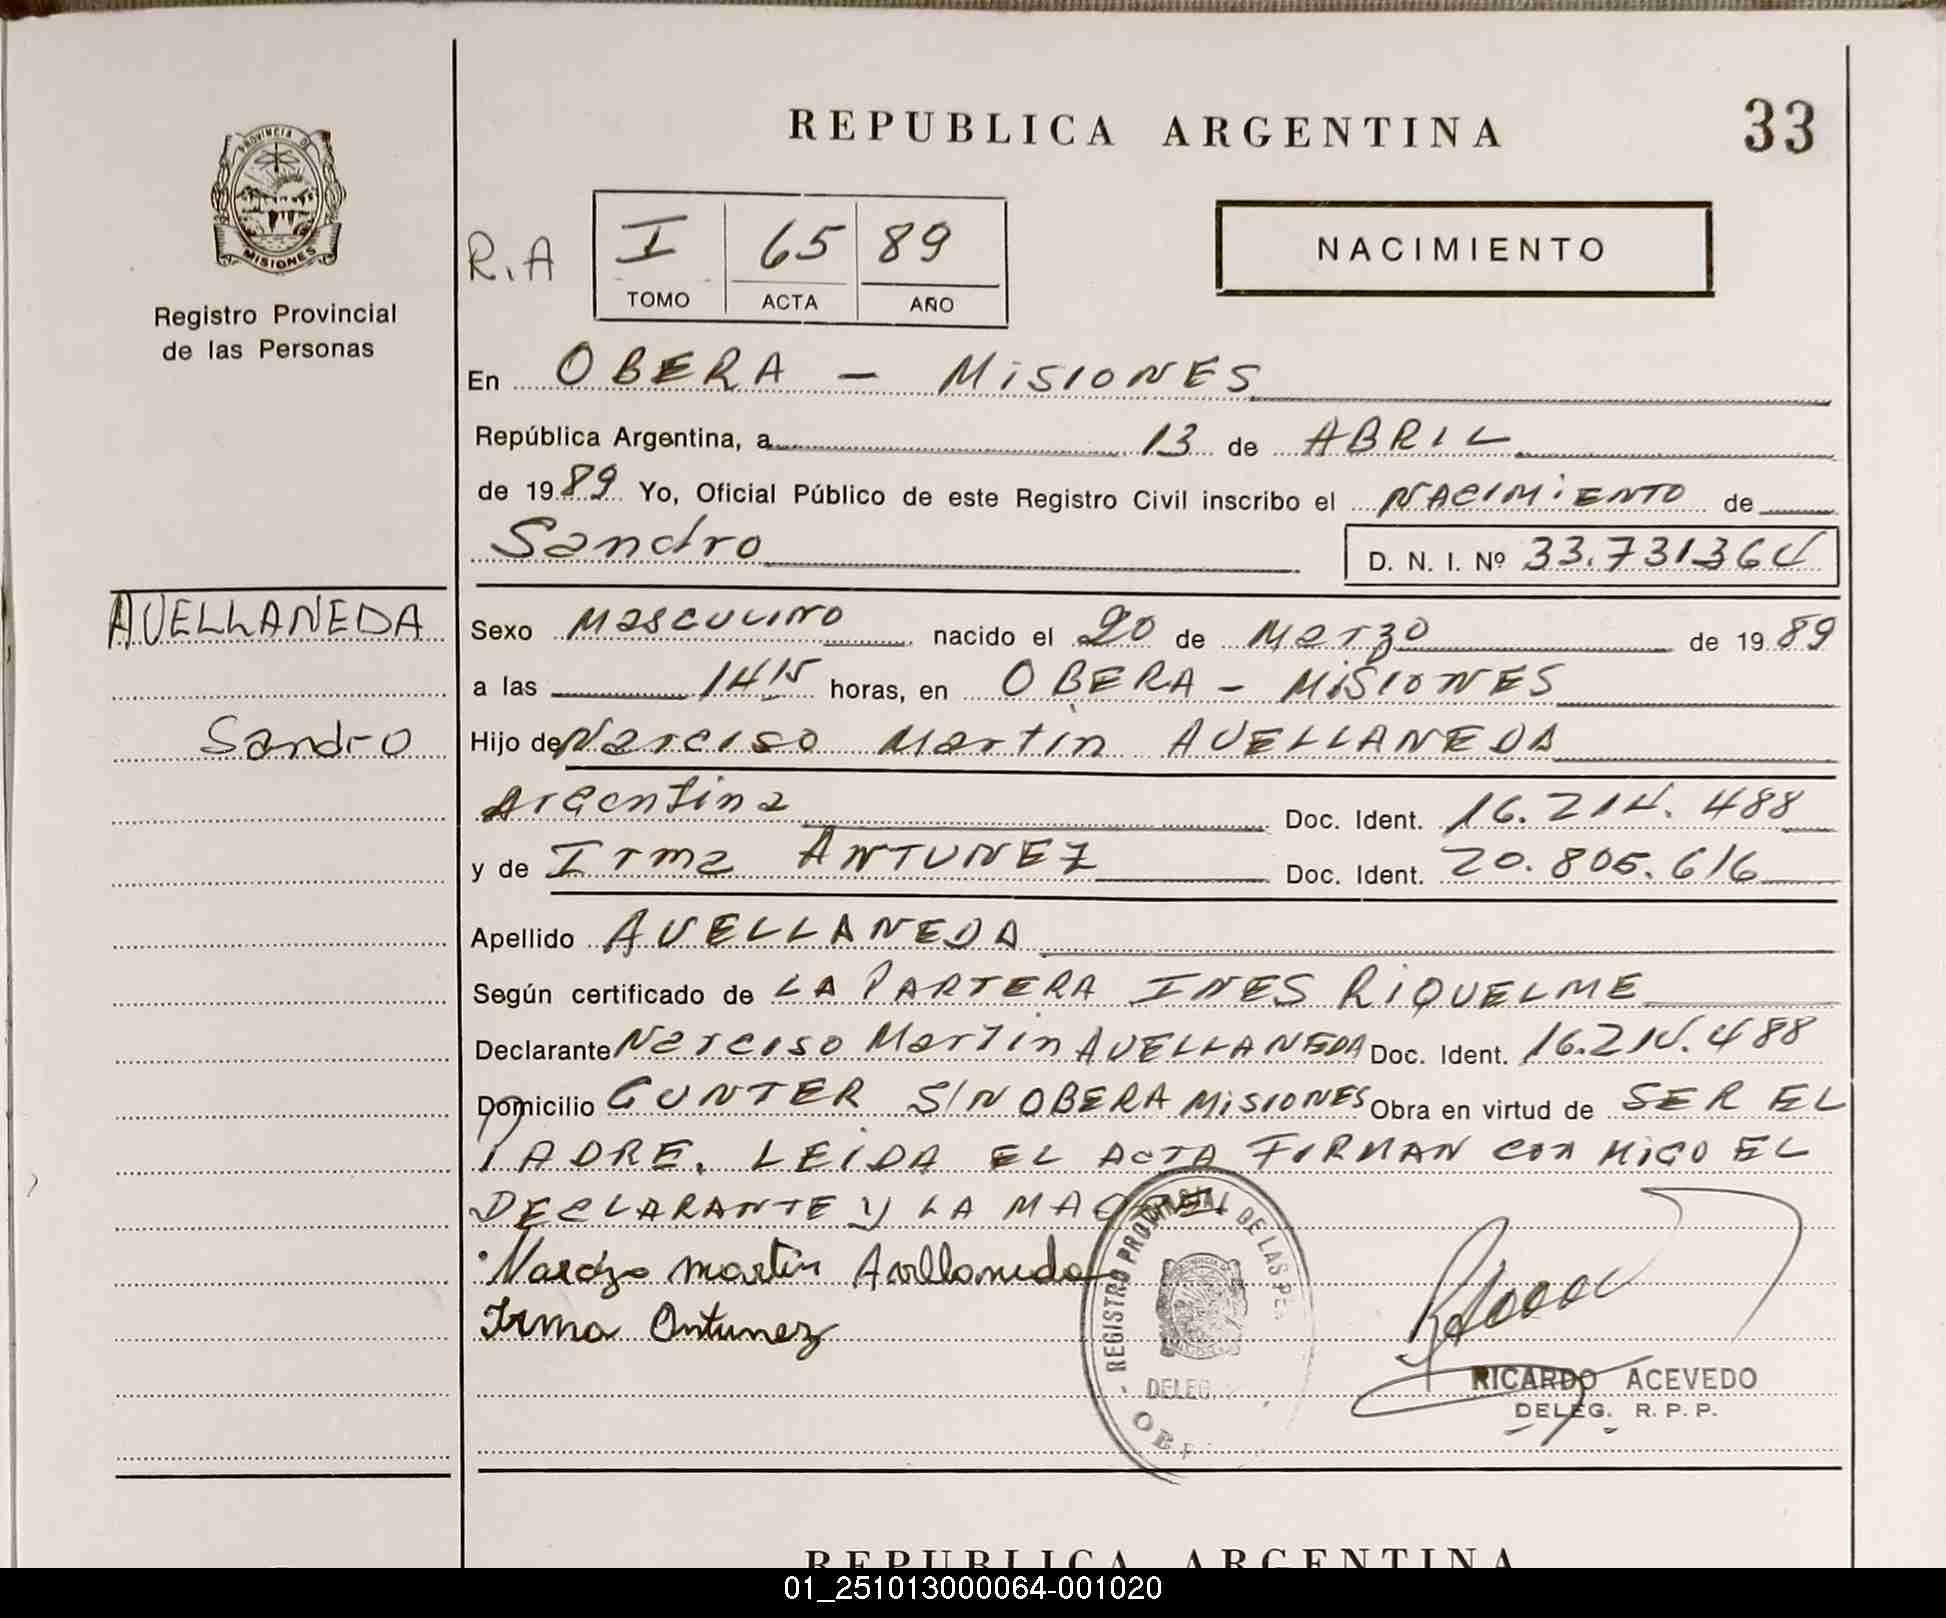 REPUBLICA ARGENTINA
33
PROVINCIA DE
MISIONES
Registro Provincial
de las Personas
R.A
I 65 89
TOMO ACTA AÑO
NACIMIENTO
En OBERA - MISIONES
República Argentina, a 13 de ABRIL
de 1989 Yo, Oficial Público de este Registro Civil inscribo el NACIMIENTO de
Sandro
D. N. I. Nº 33.731364
AVELLANEDA
Sandro
Sexo Masculino nacido el 20 de Marzo de 1989
a las 14 15 horas, en OBERA - MISIONES
Hijo de Narciso Martín AVELLANEDA
Argentina Doc. Ident. 16.214.488
y de Irma ANTUNEZ Doc. Ident. 20.805.616
Apellido AVELLANEDA
Según certificado de LA PARTERA INES RIQUELME
Declarante Narciso Martin AVELLANEDA Doc. Ident. 16.214.488
Domicilio GUNTER S/N OBERA MISIONES Obra en virtud de SER EL
PADRE. LEIDA EL ACTA FIRMAN CON MIGO EL
DECLARANTE Y LA MADRE.
Narcizo martin Avellaneda
Irma Antunez
REGISTRO PROVINCIAL DE LAS PE
DELEG.
OBE
RICARDO ACEVEDO
DELEG. R. P. P.
REPUBLICA ARGENTINA
01_251013000064-001020